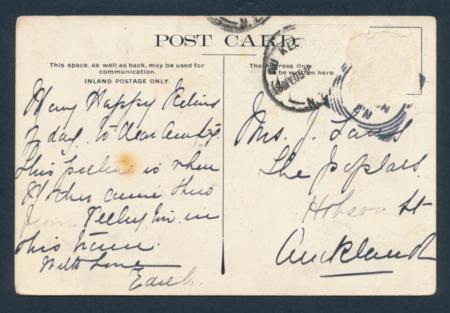 POST CARD
This space, as well as back, may be used for
communication.
INLAND POSTAGE ONLY.
The Address Only
be written here.
Many Happy Returns
of day. to dear
This picture is when
Mother came thro
from in
this
With Love
Edith.
Mrs. J.
The Poplars
Hobson St
Auckland